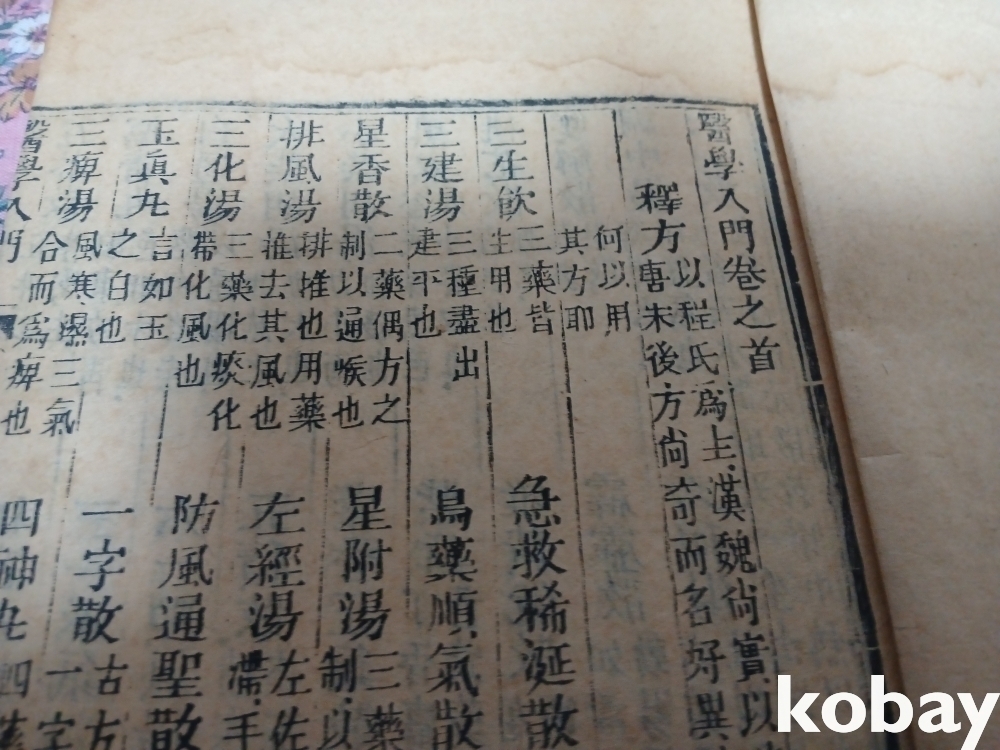 醫學入門卷之首
釋方 以程氏爲主漢魏尙實以
唐宋後方尙奇而名好異
何以用
其方耶
三生飮 三藥皆
生用也
急救稀涎散
三建湯 三種盡出
建平也
烏藥順氣散
星香散 二藥偶方之
制以通喉也
星附湯 三藥
制以
排風湯 排推也用藥
推去其風也
左經湯 左佐
帶手
三化湯 三藥化痰化
帶化風也
防風通聖散
玉眞丸 言如玉
之白也
一字散 古方
一字
三痺湯 風寒濕三氣
合而爲痺也
四神丸 四
醫學入門
kobay